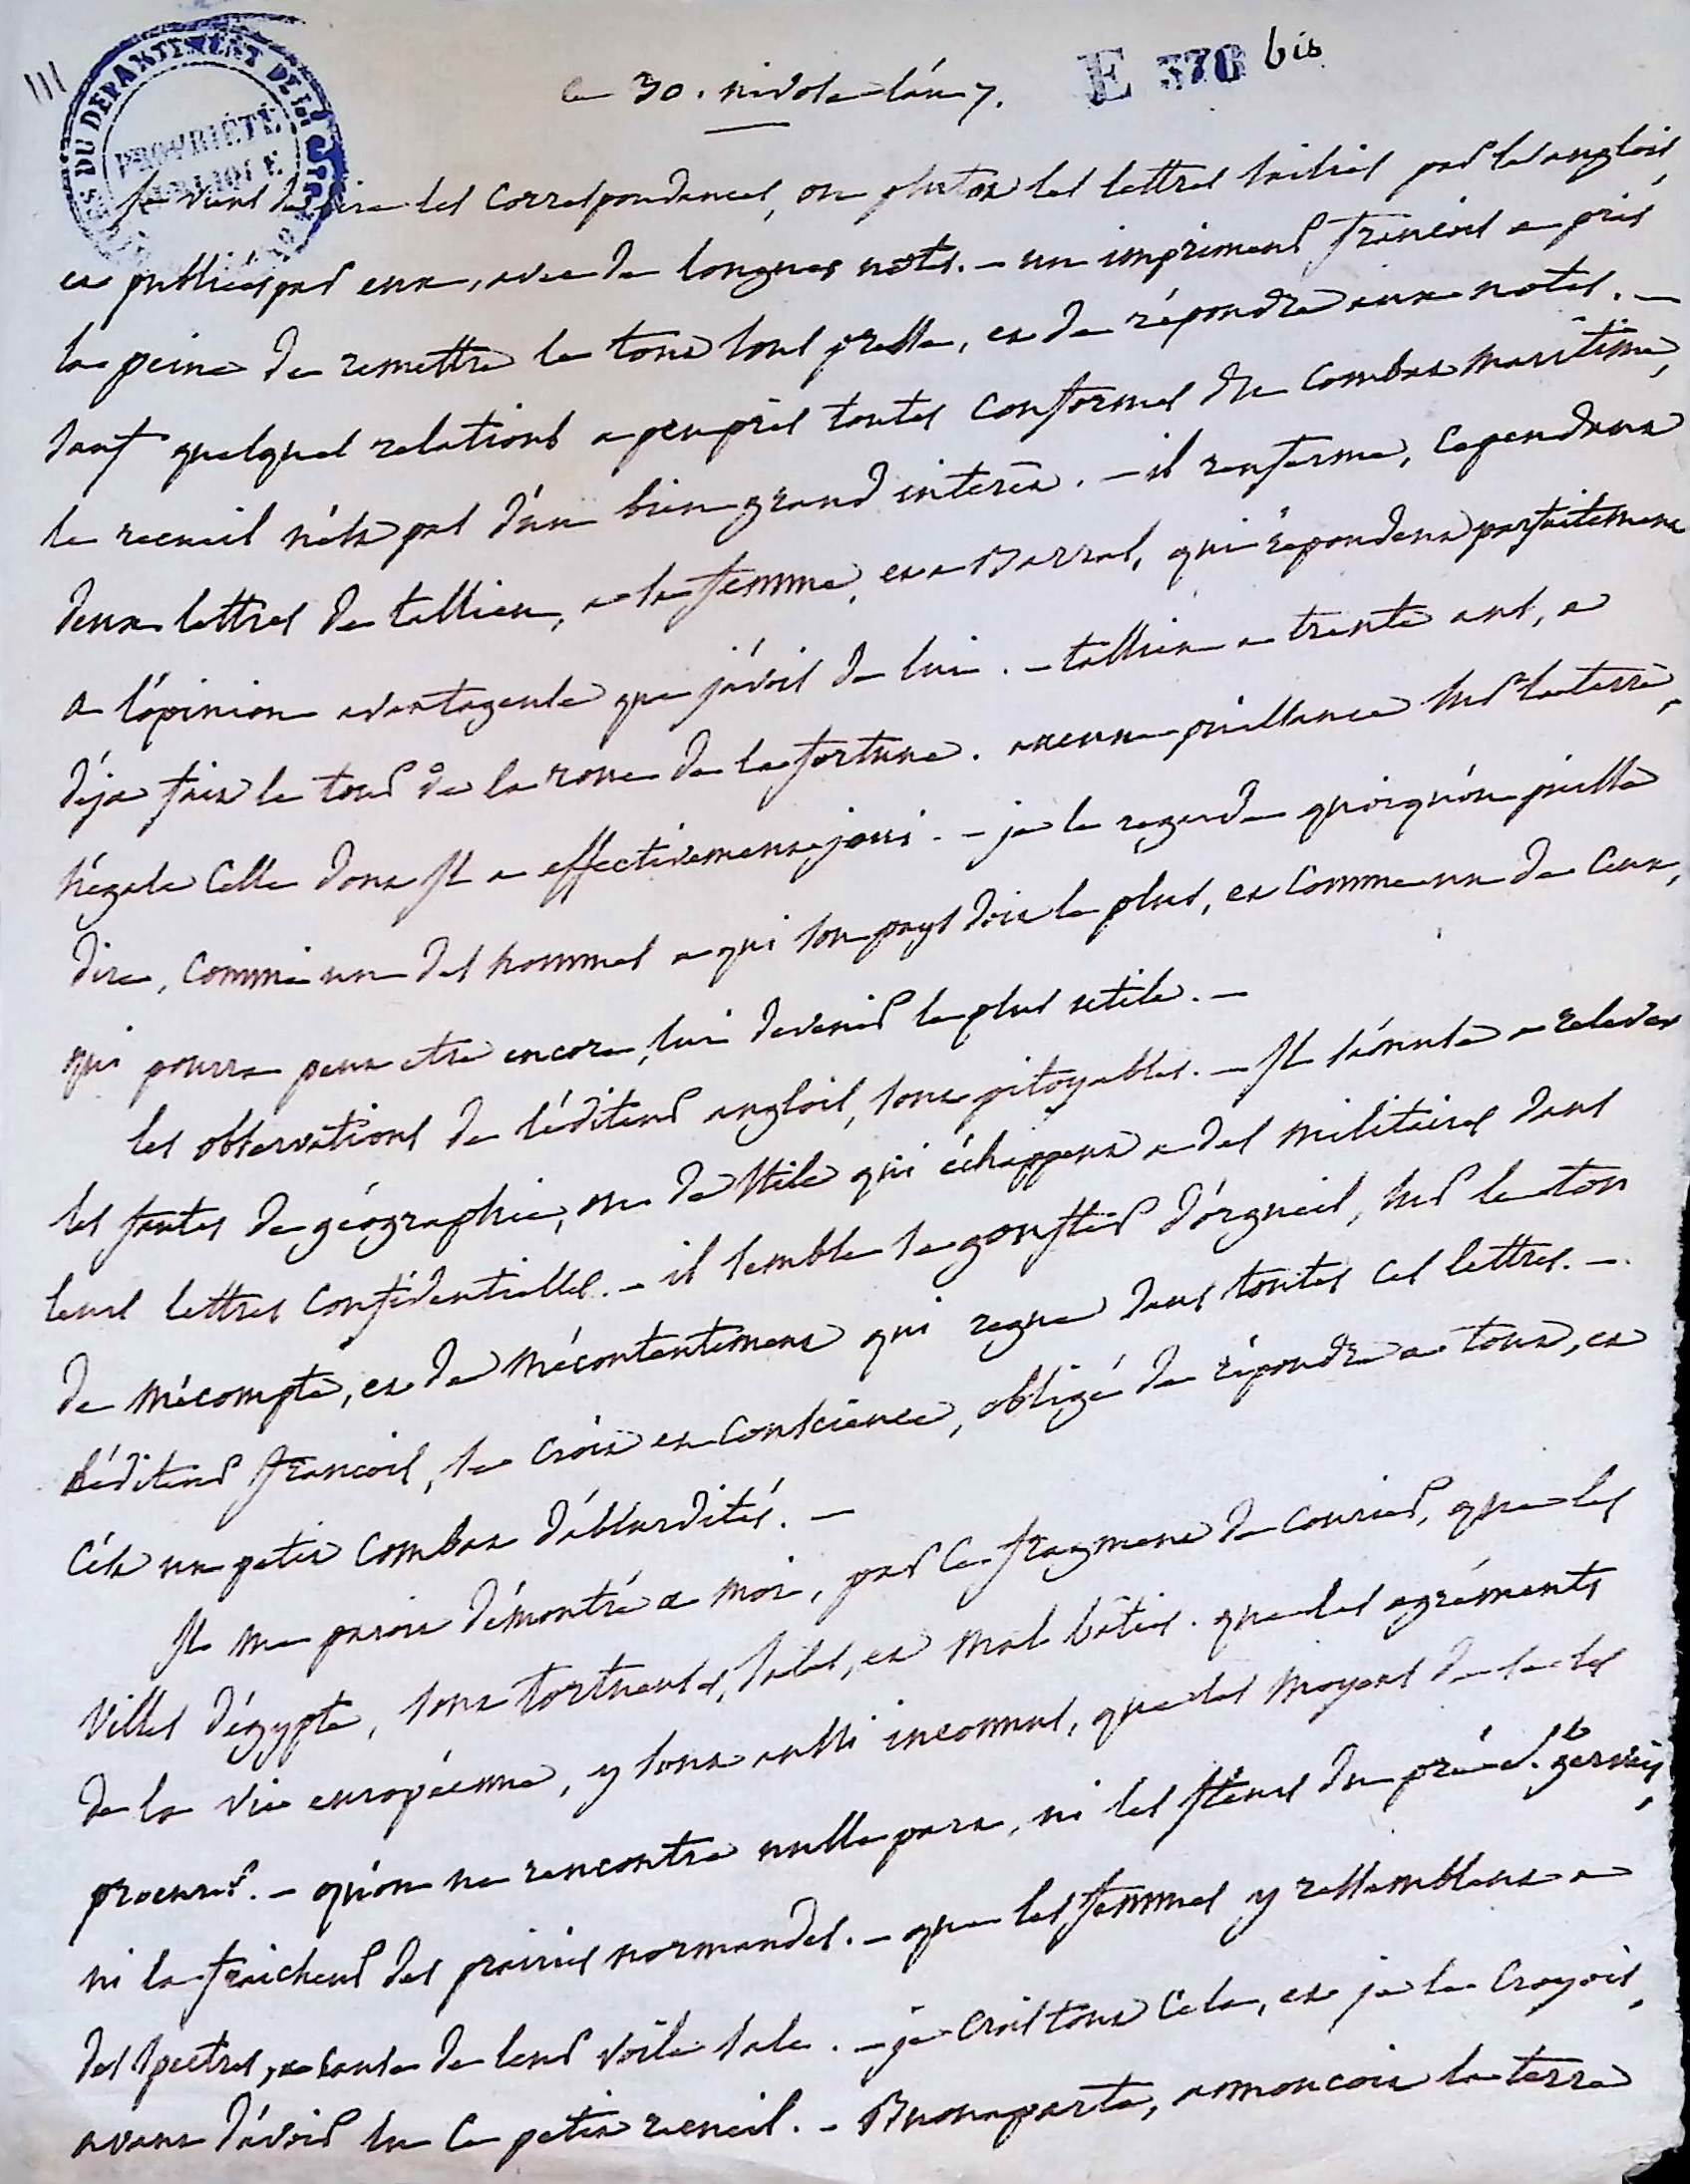 le 30. nivose l'an 7.
E 376 bis
ARCHIVES DU DÉPARTEMENT DE
PROPRIÉTÉ
PUBLIQUE
je viens de lire les correspondances, ou plutot les lettres saisies par les anglois,
et publiées par eux, avec de longues notes. - un imprimeur francois a pris
la peine de remettre le tout sous presse, et de répondre aux notes. -
sauf quelques relations a peu près toutes conformes du combat maritime,
le recueil n'est pas d'un bien grand interêt. - il renferme, cependant
deux lettres de tallien, a sa femme, et a Barras, qui répondent parfaitement
a l'opinion avantageuse que j'avois de lui. - tallien a trente ans, a
déja fait le tour de la roue de la fortune. aucune puissance sur la terre,
n'égale celle dont Il a effectivement joui. - je le regarde quoiqu'on puisse
dire, comme un des hommes a qui son pays doit le plus, et comme un de ceux,
qui pourra peut etre encore, lui devenir le plus utile. -
les observations de l'éditeur anglois, sont pitoyables. - Il s'amuse a relever
les fautes de géographie, ou de stile qui échappent a des militaires dans
leurs lettres confidentielles. - il semble se gonfler d'orgueil, sur le ton
de mécompte, et de mécontentement qui regne dans toutes ces lettres. -
l'éditeur francois, se croit en conscience, obligé de répondre a tout, et
c'est un petit combat d'absurdités. -
Il me paroit démontré a moi, par ce fragment de courier, que les
villes d'égypte, sont tortueuses, sales, et mal bâties. que les agréments
de la vie européenne, y sont aussi inconnus, que les moyens de se les
procurer. - qu'on ne rencontre nulle part, ni les fleurs du pré st. gervais,
ni la fraicheur des prairies normandes. - que les femmes y ressemblent a
des spectres, a cause de leur voile sale. - je crois tout cela, et je le croyois,
avant d'avoir lu ce petit recueil. - Buonaparte, annoncoit la terre